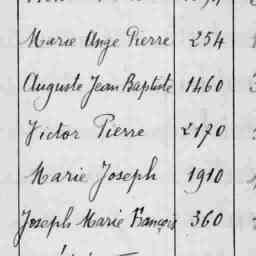 Marie Ange Pierre 254
Auguste Jean Baptiste 1460
Victor Pierre 2170
Marie Joseph 1910
Joseph Marie François 360